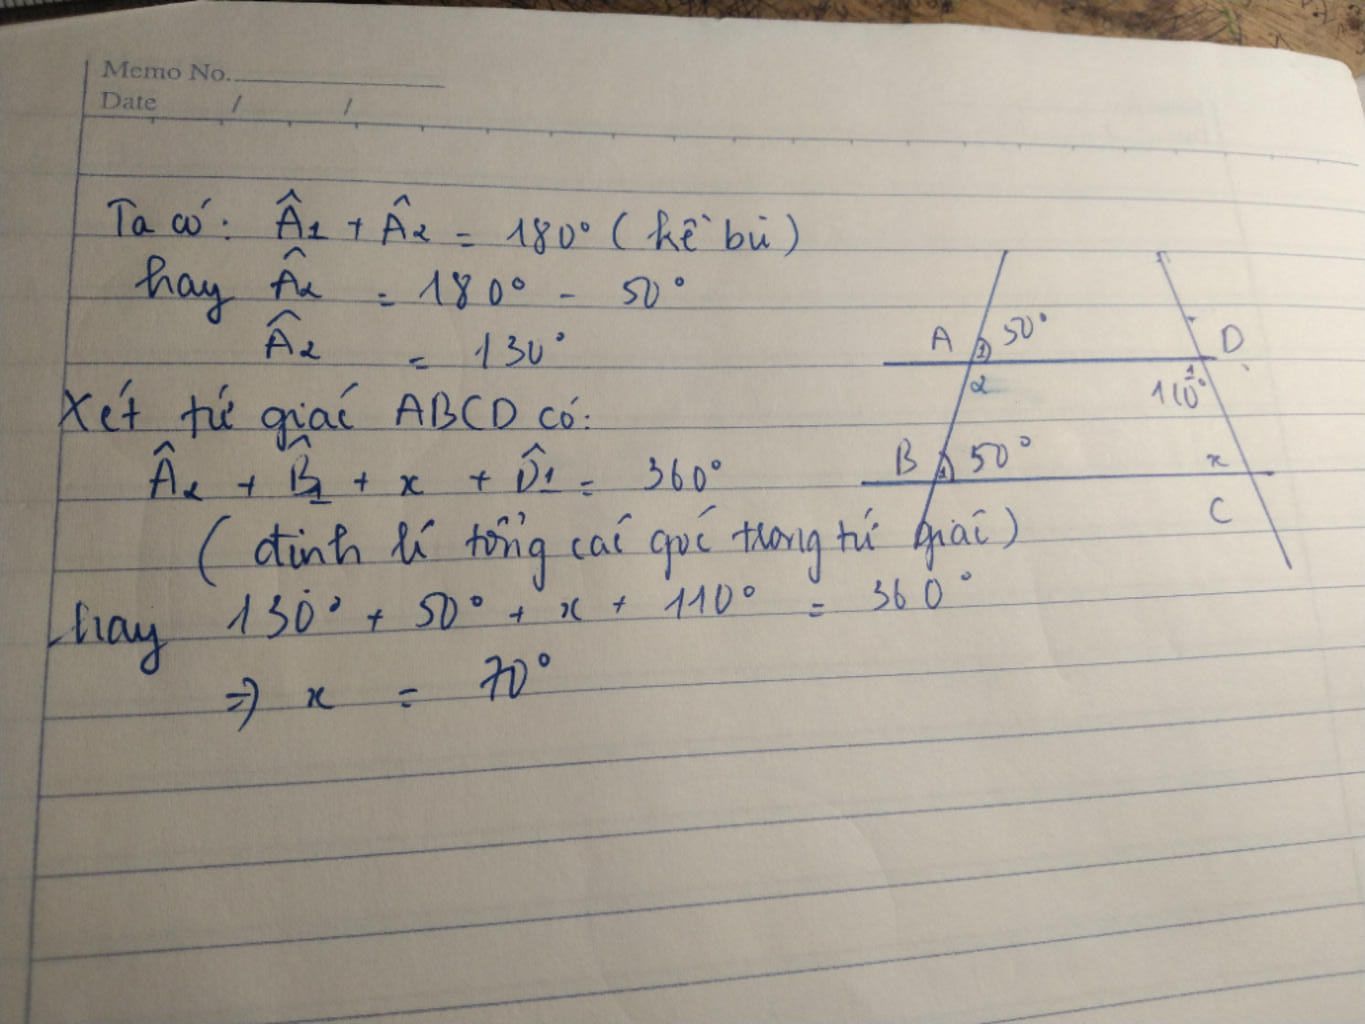 Memo No.
Date / /
Ta có: Â1 + Â2 = 180° (kề bù)
hay Â2 = 180° - 50°
Â2 = 130°
Xét tứ giác ABCD có:
Â2 + B̂1 + x + D̂1 = 360°
(định lí tổng các góc trong tứ giác)
hay 130° + 50° + x + 110° = 360°
=> x = 70°
A 1 50° D
2 1 110°
B 1 50° x
C